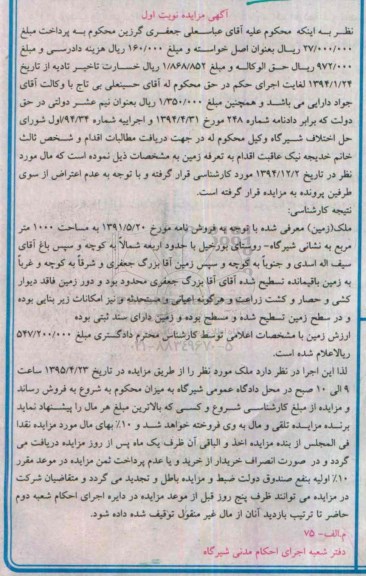 آگهی مزایده نوبت اول
نظر به اینکه محکوم علیه آقای عباسعلی جعفری گرزین محکوم به پرداخت مبلغ
۲۷/۰۰۰/۰۰۰ ریال بعنوان اصل خواسته و مبلغ ۱۶۰/۰۰۰ ریال هزینه دادرسی و مبلغ
۹۷۲/۰۰۰ ریال حق الوکاله و مبلغ ۱/۸۶۸/۸۵۲ ریال خسارت تاخیر تادیه از تاریخ
۱۳۹۴/۱/۲۴ لغایت اجرای حکم در حق محکوم له آقای حسینعلی بی تاج با وکالت آقای
جواد دارایی می باشد و همچنین مبلغ ۱/۳۵۰/۰۰۰ ریال بعنوان نیم عشر دولتی در حق
دولت که برابر دادنامه شماره ۲۴۸ مورخ ۱۳۹۴/۴/۳۱ و اجراییه شماره ۹۴/۳۴/اول شورای
حل اختلاف شیرگاه وکیل محکوم له در جهت دریافت مطالبات اقدام و شخص ثالث
خانم خدیجه نیک عاقبت اقدام به تعرفه زمین به مشخصات ذیل نموده است که مال مورد
نظر در تاریخ ۱۳۹۴/۱۲/۲ مورد کارشناسی قرار گرفته و با توجه به عدم اعتراض از سوی
طرفین پرونده به مزایده قرار گرفته است.
نتیجه کارشناسی:
ملک(زمین) معرفی شده با توجه به فروش نامه مورخ ۱۳۹۱/۵/۲۰ به مساحت ۱۰۰۰ متر
مربع به نشانی شیرگاه- روستای بورخیل با حدود اربعه شمالاً به کوچه و سپس باغ آقای
سیف اله اسدی و جنوباً به کوچه و سپس زمین آقا بزرگ جعفری و شرقاً به کوچه و غرباً
به زمین باقیمانده تسطیح شده آقای آقا بزرگ جعفری محدود بود و دور زمین فاقد دیوار
کشی و حصار و کشت زراعت و هرگونه اعیانی و مستحدثه و نیز امکانات زیر بنایی بوده
و در سطح زمین تسطیح شده و مسطح بوده و زمین دارای سند ثبتی بوده
ارزش زمین با مشخصات اعلامی توسط کارشناس محترم دادگستری مبلغ ۵۴۷/۲۰۰/۰۰۰
ریال‌اعلام شده است.
لذا این اجرا در نظر دارد ملک مورد نظر را از طریق مزایده در تاریخ ۱۳۹۵/۴/۲۳ ساعت
۹ الی ۱۰ صبح در محل دادگاه عمومی شیرگاه به میزان محکوم به شروع به فروش رساند
و مزایده از مبلغ کارشناسی شروع و کسی که بالاترین مبلغ هر مال را پیشنهاد نماید
برنده مزایده تلقی و مال به وی فروخته خواهد شد و ۱۰٪ بهای مال مورد مزایده نقدا
فی المجلس از بنده مزایده اخذ و الباقی آن ظرف یک ماه پس از روز مزایده دریافت می
گردد و در صورت انصراف خریدار از خرید و یا عدم پرداخت ثمن مزایده در موعد مقرر
۱۰٪ اولیه بنفع صندوق دولت ضبط و مزایده باطل و تجدید می گردد و متقاضیان شرکت
در مزایده می توانند ظرف پنج روز قبل از موعد مزایده در دایره اجرای احکام شعبه دوم
حاضر تا ترتیب بازدید آنان از مال غیر منقول توقیف شده داده شود.
م.الف- ۷۵
دفتر شعبه اجرای احکام مدنی شیرگاه